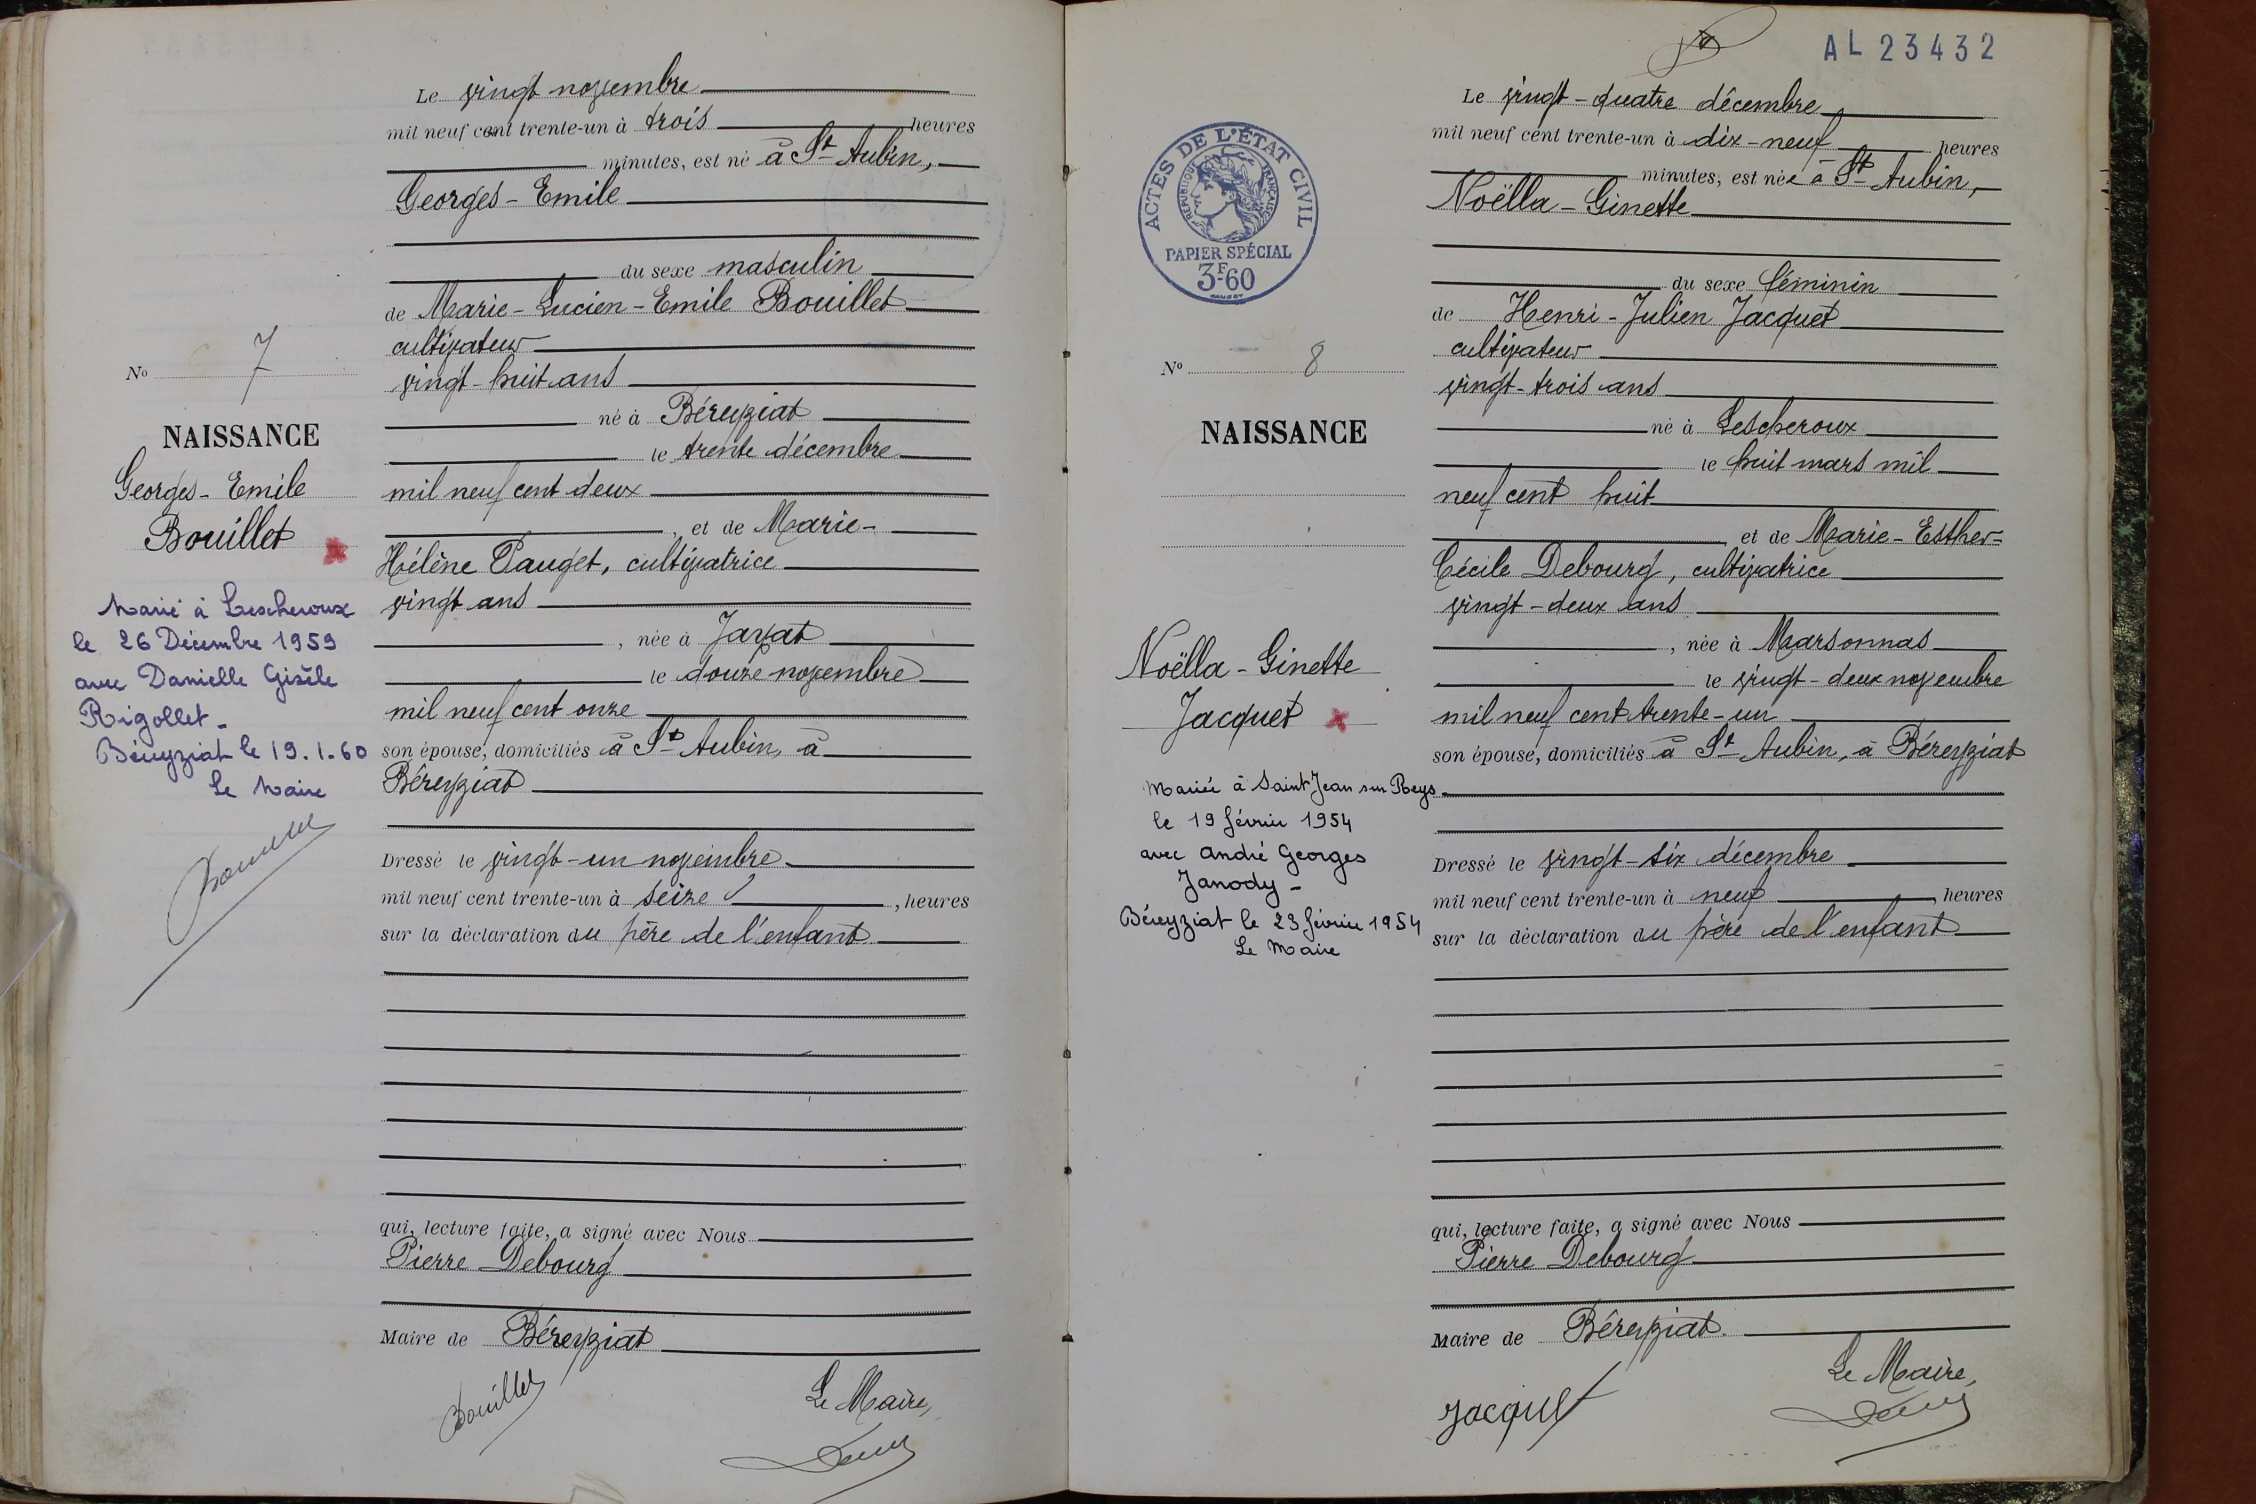 Le vingt novembre
mil neuf cent trente-un à trois heures
minutes, est né à St Aubin,
Georges-Emile
du sexe masculin
de Marie-Lucien-Emile Bouillet
cultivateur
vingt-huit ans
né à Béreyziat
le trente décembre
mil neuf cent deux
, et de Marie-
Hélène Pauget, cultivatrice
vingt ans
, née à Jayat
le douze novembre
mil neuf cent onze
son épouse, domiciliés à St Aubin, à
Béreyziat
Dressé le vingt-un novembre
mil neuf cent trente-un à seize , heures
sur la déclaration du père de l'enfant
qui, lecture faite, a signé avec Nous
Pierre Debourg
Maire de Béreyziat
Bouillet
Le Maire,
No 7
NAISSANCE
Georges-Emile
Bouillet
Marié à Lescheroux
le 26 Décembre 1959
avec Danielle Gisèle
Rigollet-
Béreyziat le 19.1.60
Le Maire
AL 23432
ACTES DE L'ÉTAT CIVIL
RÉPUBLIQUE FRANÇAISE
PAPIER SPÉCIAL
3F-60
No 8
NAISSANCE
Noëlla-Ginette
Jacquet
Mariée à Saint Jean sur Reys-
le 19 février 1954
avec André Georges
Janody-
Béreyziat le 23 février 1954
Le Maire
Le vingt-quatre décembre
mil neuf cent trente-un à dix-neuf heures
minutes, est née à St Aubin,
Noëlla-Ginette
du sexe féminin
de Henri-Julien Jacquet
cultivateur
vingt-trois ans
né à Lescheroux
le huit mars mil
neuf cent huit
et de Marie-Esther-
Cécile Debourg, cultivatrice
vingt-deux ans
, née à Marsonnas
le vingt-deux novembre
mil neuf cent trente-un
son épouse, domiciliés à St Aubin, à Béreyziat
Dressé le vingt-six décembre
mil neuf cent trente-un à neuf , heures
sur la déclaration du père de l'enfant
qui, lecture faite, a signé avec Nous
Pierre Debourg
Maire de Béreyziat.
Jacquet
Le Maire,